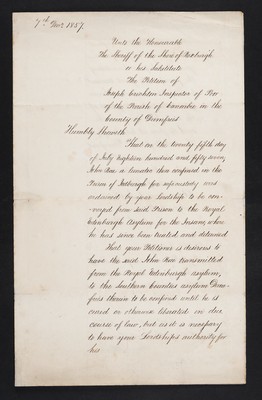 7th Decr 1857.
Unto the Honourable
The Sheriff of the Shire of Roxburgh
or his Substitute
The Petition of
Joseph Crichton Inspector of Poor
of the Parish of Canonbie in the
County of Dumfries
Humbly Sheweth
That on the twenty fifth day
of July eighteen hundred and fifty seven,
John Rae a lunatic then confined in the
Prison of Jedburgh for safe custody was
ordained by your Lordship to be con-
veyed from said Prison to the Royal
Edinburgh Asylum for the Insane, where
he has since been treated and detained
That your Petitioner is desirous to
have the said John Rae transmitted
from the Royal Edinburgh asylum,
to the Southern Counties asylum Dum-
fries therein to be confined until he is
cured or otherwise liberated in due
course of law, but as it is necessary
to have your Lordships authority for
his